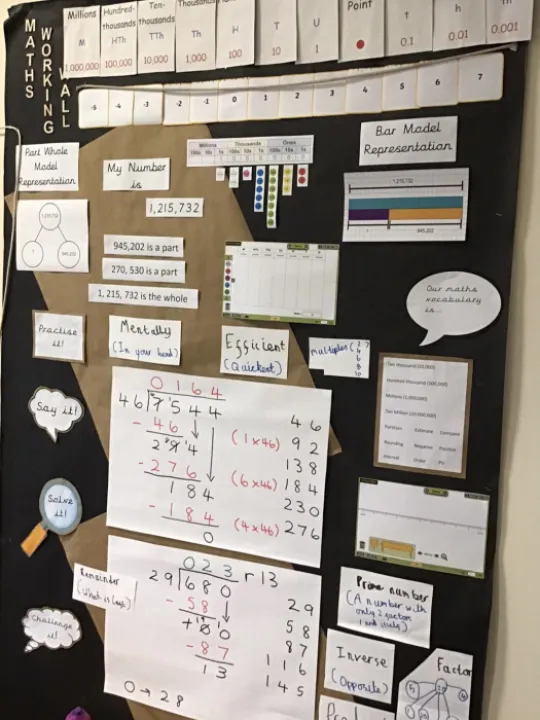 MATHS
WORKING
WALL
Millions
Hundred-thousands
Ten-thousands
Thousands
Hundreds
Point
M
HTh
TTh
Th
H
T
U
t
h
Th
1,000,000
100,000
10,000
1,000
100
10
1
0.1
0.01
0.001
-5 -4 -3 -2 -1 0 1 2 3 4 5 6 7
Part Whole
Model
Representation
My Number
is
1,215,732
945,202 is a part
270, 530 is a part
1, 215, 732 is the whole
Millions Thousands Ones
100s 10s 1s 100s 10s 1s 100s 10s 1s
Bar Model
Representation
1,215,732
945,202
1,215,732
?
945,202
Our maths
vocabulary
is...
Practise
it!
Mentally
(In your head)
Efficient
(Quickest)
multiples
2
4
6
8
10
Ten thousand (10,000)
Hundred thousand (100,000)
Millions (1,000,000)
Ten Million (10,000,000)
Partition Estimate Compare
Rounding Negative Positive
Interval Order
Say it!
Solve
it!
Challenge
it!
0164
46 7544
- 46
294
- 276
184
- 184
0
(1x46)
(6x46)
(4x46)
46
92
138
184
230
276
Remainder
(What is left)
023 r 13
29 680
- 58
100
- 87
13
0 → 28
29
58
87
116
145
Prime number
(A number with
only 2 factors
1 and itself)
Inverse
(Opposite)
Factor